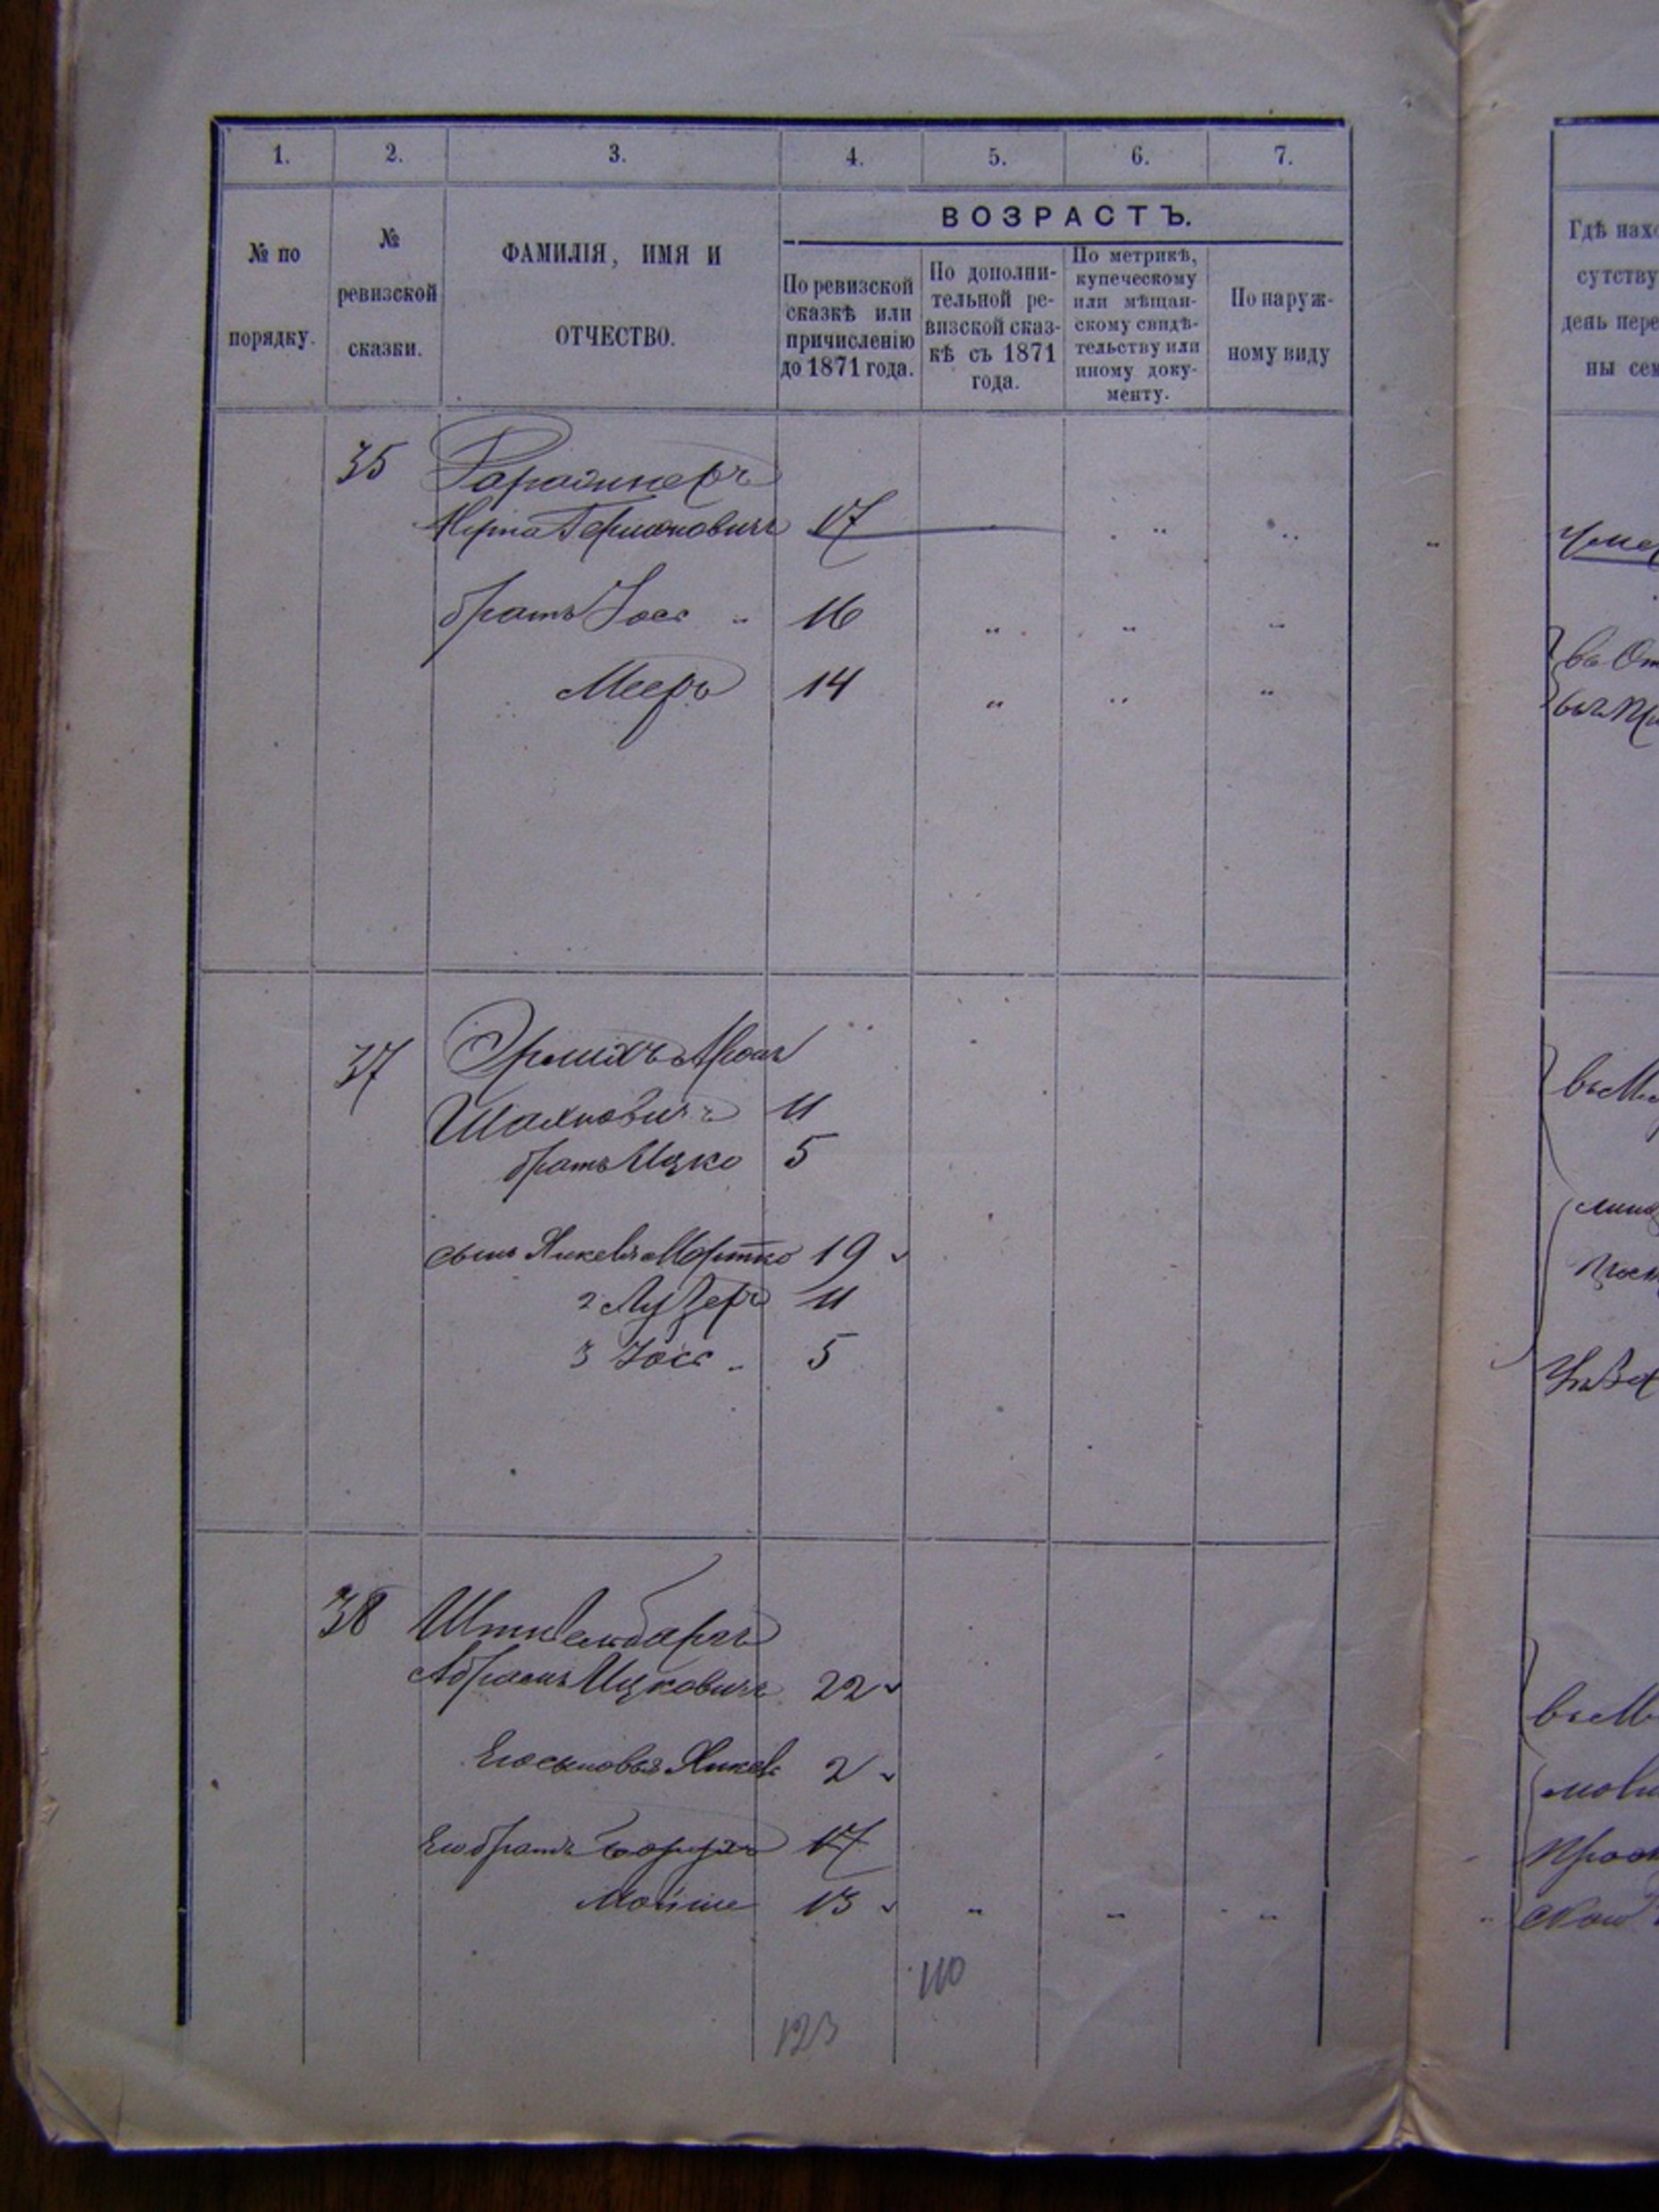 1. 2. 3. 4. 5. 6. 7.
№ по порядку.
№ ревизской сказки.
ФАМИЛІЯ, ИМЯ И ОТЧЕСТВО.
ВОЗРАСТЪ.
По ревизской сказкѣ или причисленію до 1871 года.
По дополни-
тельной ре-
визской сказ-
кѣ съ 1871
года.
По метрикѣ,
купеческому
или мѣщан-
скому свидѣ-
тельству или
иному доку-
менту.
По наруж-
ному виду
Гдѣ нахо
сутству
день пере
ны сем
35
Германовичъ 17
братъ Іось " 16 " " "
Мееръ 14 " " "
37 Эрлихъ Аронъ
Шахновичъ 11
братъ Ицко 5
сынъ Янкеля Мортко 19
2 Лузеръ 11
3 Іось " 5
38
Абрамъ Ицковичъ 22
Его сыновья Янкель 2
Его братъ Борухъ 17
Мойше 13 " " "
110
123